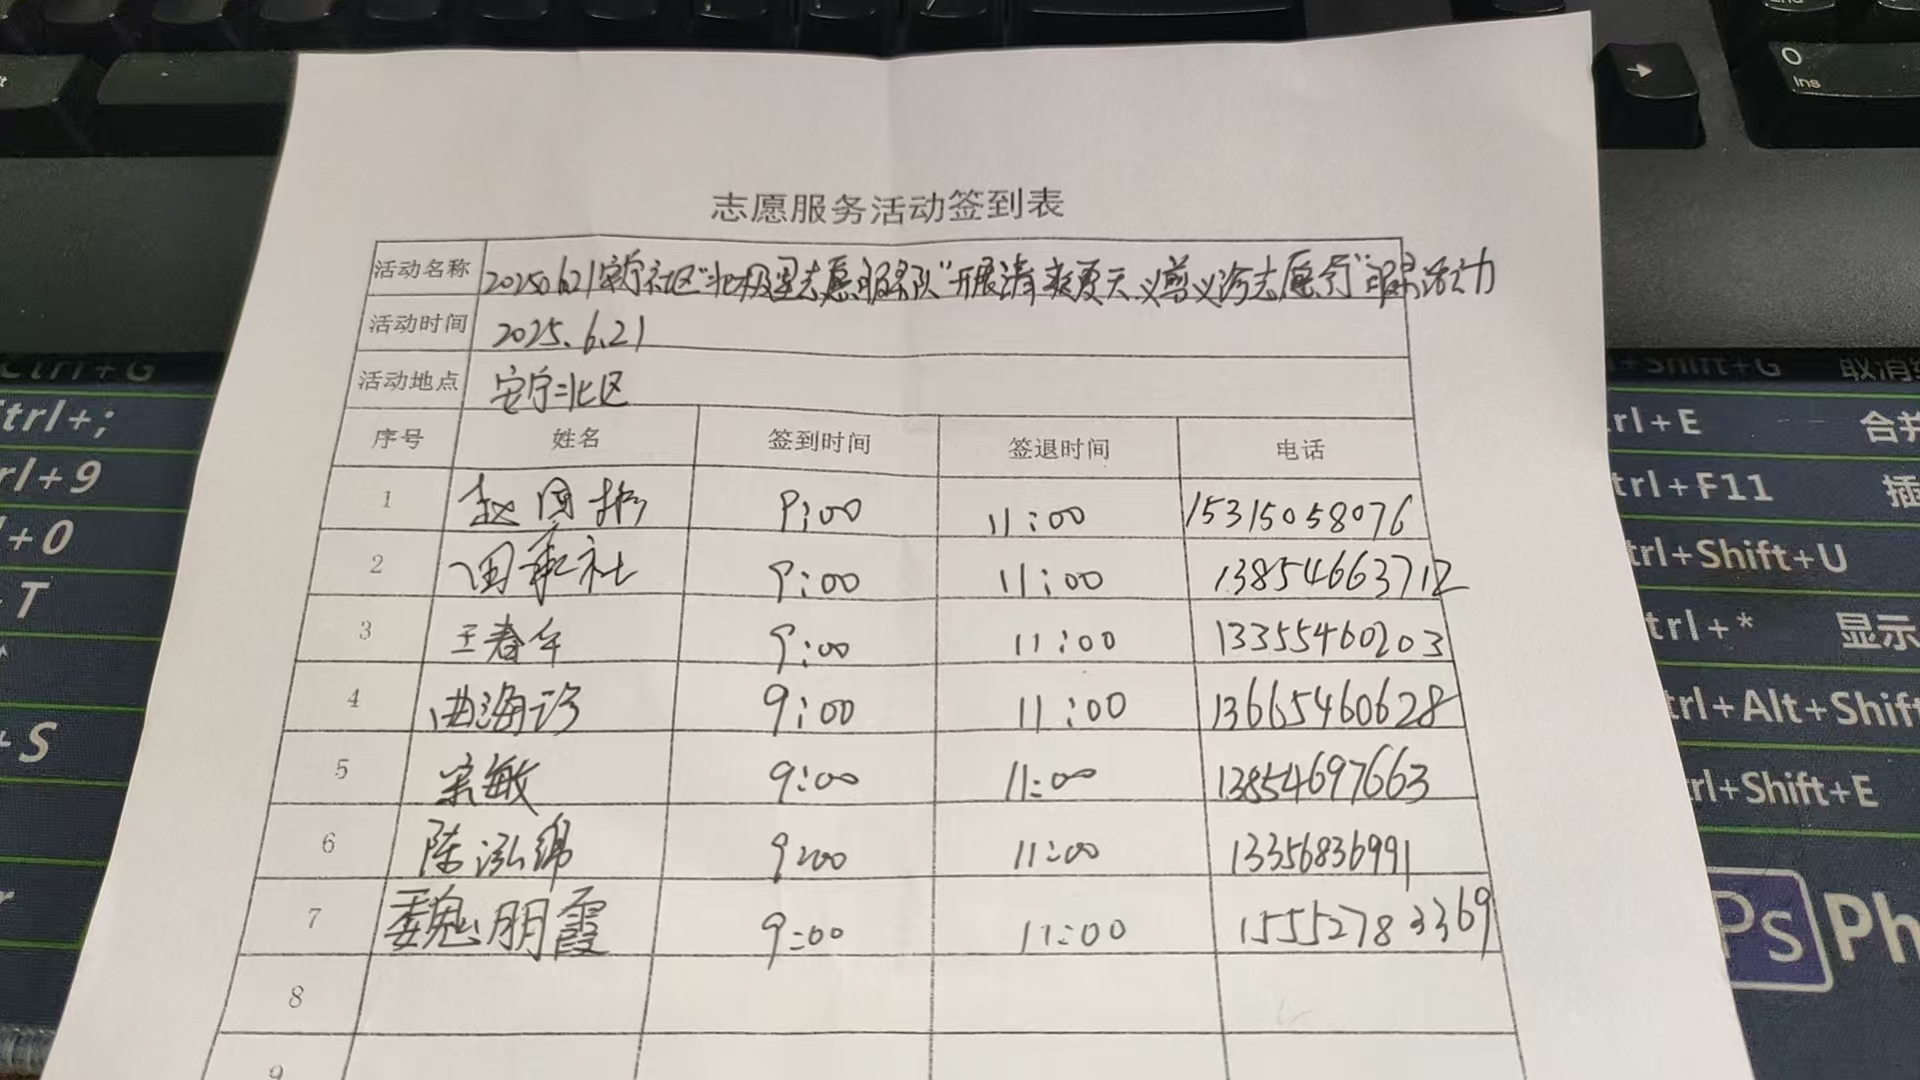 志愿服务活动签到表
活动名称 20250621安宁社区"北极星志愿服务队"开展清爽夏天 义剪义诊志愿行"服务活动
活动时间 2025.6.21
活动地点 安宁北区
序号 姓名 签到时间 签退时间 电话
1 赵国 9:00 11:00 15315058076
2 田承社 9:00 11:00 13854663712
3 王春年 9:00 11:00 13355460203
4 曲海珍 9:00 11:00 13665460628
5 宗敏 9:00 11:00 13854697663
6 陈泓锦 9:00 11:00 13356836991
7 魏明霞 9:00 11:00 15552783369
8
9
Ctrl+G
Ctrl+;
Ctrl+9
+0
+T
+S
→
0
Ins
Ctrl+Shift+G 取消
Ctrl+E 合并
Ctrl+F11 插
Ctrl+Shift+U
Ctrl+* 显示
Ctrl+Alt+Shift
Ctrl+Shift+E
Ps Ph